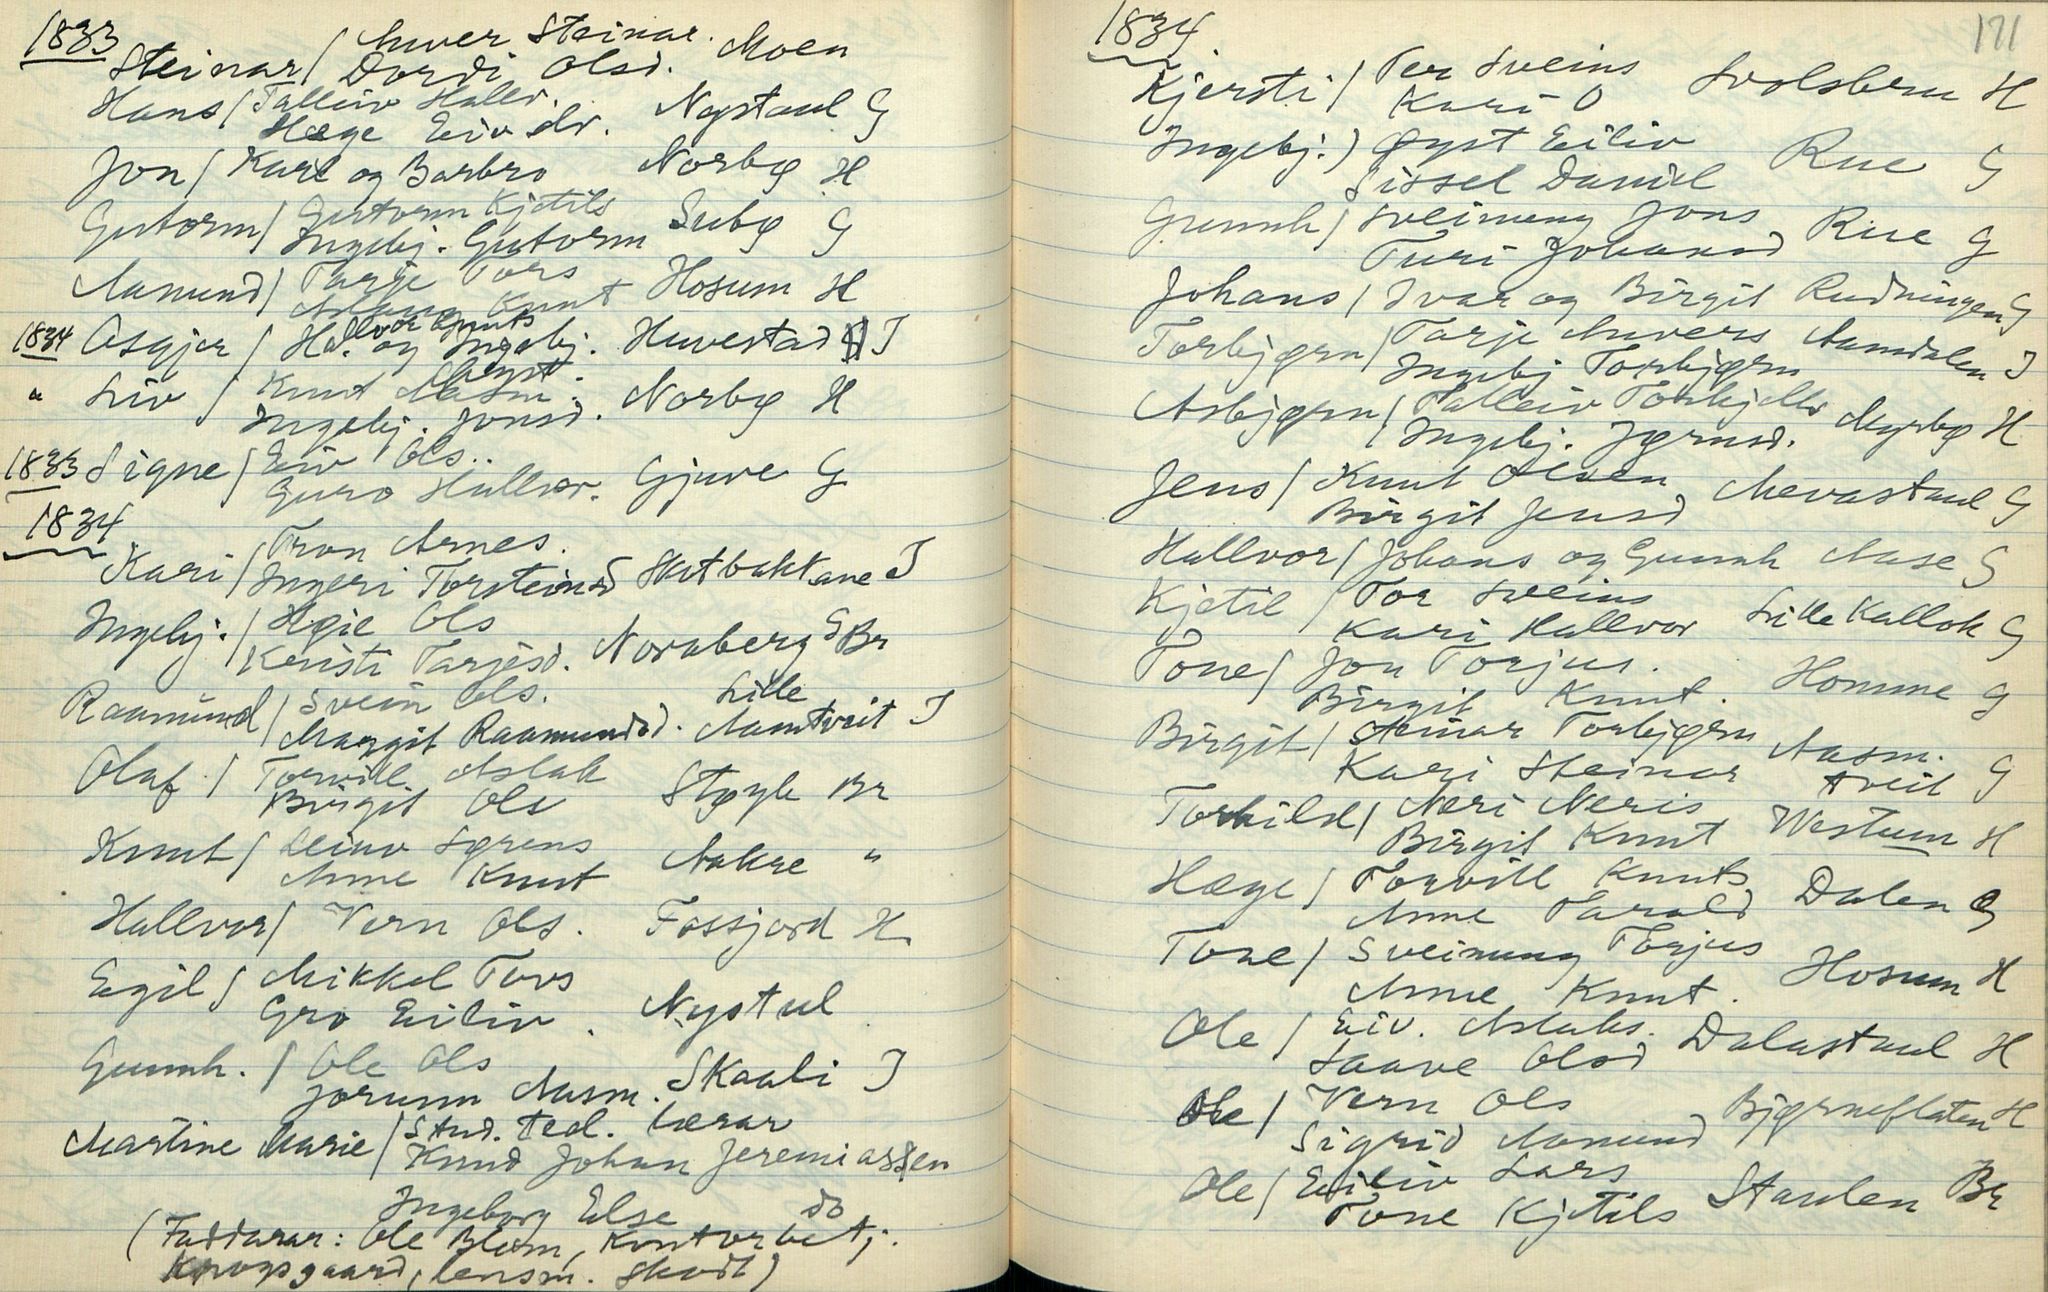 1833
Steinar / Anver Steinar. Moen
Dordi Olsd.
Hans / Talleiv Hallv. Nystaul G
Hæge Eivdr.
Jon / Kari og Barbro Norbø H
Gutorm / Gutorm Kjetils Subø G
Ingebj. Gutorm
Aamund / Tarje Tors Hosum H
Knut
1834 Asgjer / Hallvor Gunts og Ingebj. Huvestad I
Øyst.
" Liv / Knut Aasm. Norbø H
Ingebj. Jonsd.
1833 Signe / Eiv Ols. Gjuve G
Guro Hallvor.
1834
Kari / Tron Arnes. Skotbakkane I
Ingeri Torsteinsd
Ingebj. / Høie Ols Noraberg S Br
Kersti Tarjesd.
Raamund / Svein Ols. Lille
Margit Raamundsd. Aamtveit I
Olaf / Torvill Aslak Støyle Br
Birgit Ols
Knut / Leiuv Sørens Aakre "
Anne Knut
Hallvor / Vern Ols. Fossjord H
Egil / Mikkel Tovs Nystul
Gro Eiliv.
Gunnh. / Ole Ols Skaali I
Jorunn Aasm.
Martine Marie / Stud. teol. lærar
Knud Johan Jeremiassen
Ingeborg Else do
(Faddarar: Ole Blom, Kontorbetj.
Knopsgaard, lensm. Skodt)
1834
171
Kjersti / Per Sveins Svolsbru H
Kari O
Ingebj. ) Øyst Eiliv Rue G
Sissel Daniel
Gunnh / Sveinung Jons Rue G
Turi Johansd
Johans / Ivar og Birgit Rudningen G
Torbjørn / Tarje Anvers Aamdalen I
Ingebj Torbjørn
Asbjørn / Talleiv Torkjells Myrbø H
Ingebj. Jørnsd.
Jens / Knut Olsen Mevastaul G
Birgit Jensd
Hallvor / Johans og Gunnh Aase G
Kjetil / Tor Sveins Lille Kallok G
Kari Hallvor
Tone / Jon Torjus. Homme G
Birgit Knut.
Birgit / Steinar Torbjørn Aasm.
Kari Steinar tveit G
Torkild / Neri Neris Westum H
Birgit Knut
Hæge / Torvill Knuts Dalen G
Anne Harald
Tone / Sveinung Torjus Hosum H
Anne Knut.
Ole / Eiv. Aslaks. Dalastaul H
Saave Olsd
Ole / Vern Ols Bjørneflaten H
Sigrid Aamund
Ole / Eiliv Lars Staulen Br
Tone Kjetils